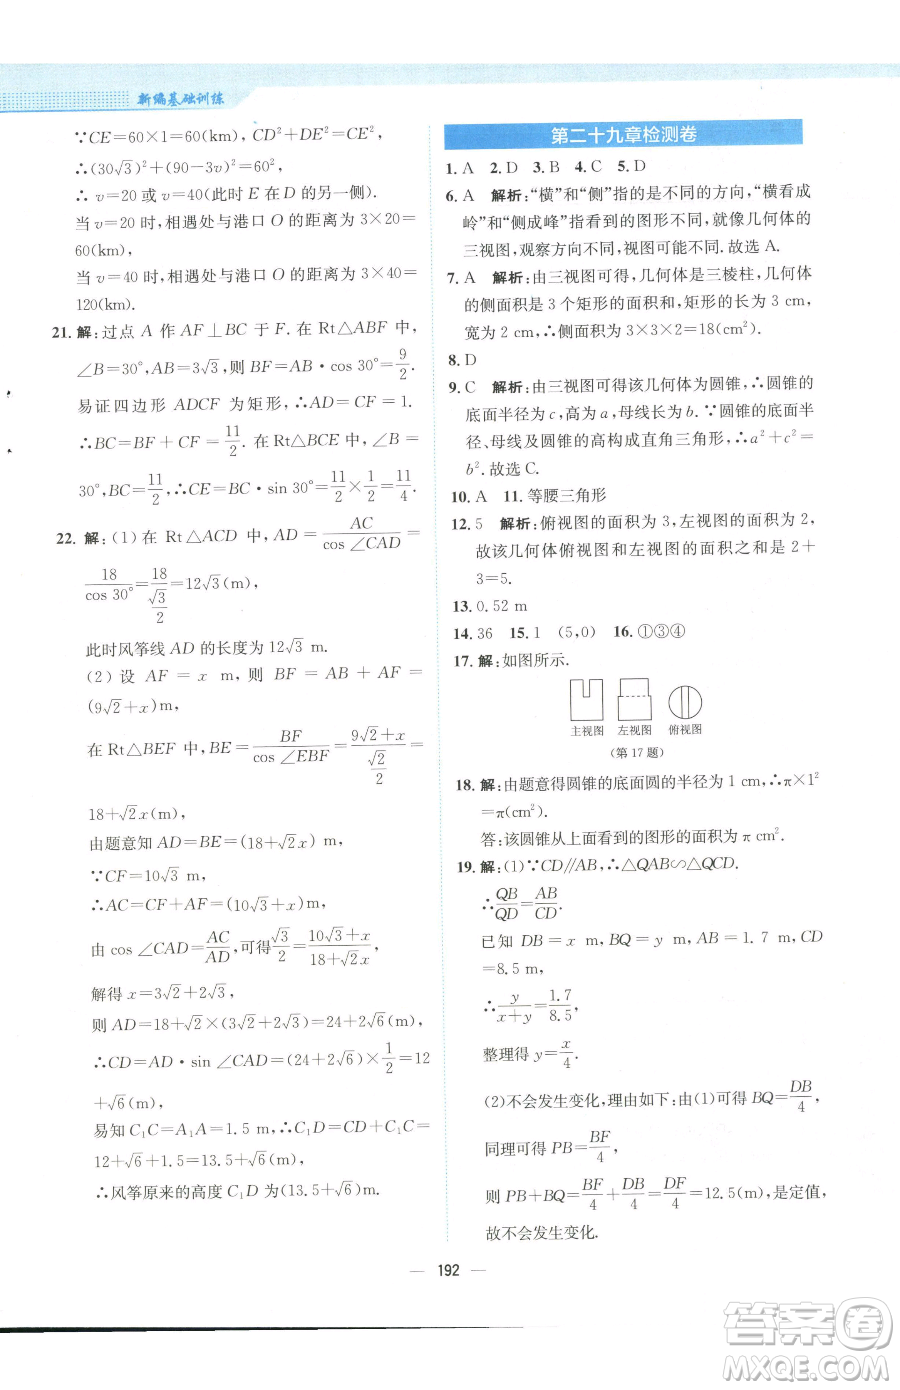 新编基础训练
∵CE=60×1=60(km),CD²+DE²=CE²,
∴(30√3)²+(90-3v)²=60²,
∴ v=20 或v=40(此时 E 在 D 的另一侧).
当 v=20 时,相遇处与港口 O 的距离为 3×20=
60(km);
当 v=40 时,相遇处与港口 O 的距离为 3×40=
120(km).
21. 解:过点 A 作 AF⊥BC 于 F. 在 Rt△ABF 中,
∠B=30°,AB=3√3,则 BF=AB·cos 30°=9/2.
易证四边形 ADCF 为矩形,∴AD=CF=1.
∴BC=BF+CF=11/2. 在 Rt△BCE 中,∠B=
30°,BC=11/2,∴CE=BC·sin 30°=11/2×1/2=11/4.
22. 解:(1)在 Rt△ACD 中,AD=AC/cos ∠CAD=
18/cos 30°=18/(√3/2)=12√3(m),
此时风筝线 AD 的长度为 12√3 m.
(2)设 AF=x m,则 BF=AB+AF=
(9√2+x)m,
在 Rt△BEF 中,BE=BF/cos ∠EBF=(9√2+x)/(√2/2)=
18+√2x(m),
由题意知 AD=BE=(18+√2x)m,
∵CF=10√3 m,
∴AC=CF+AF=(10√3+x)m,
由 cos ∠CAD=AC/AD,可得√3/2=(10√3+x)/(18+√2x),
解得 x=3√2+2√3,
则 AD=18+√2×(3√2+2√3)=24+2√6(m),
∴CD=AD·sin ∠CAD=(24+2√6)×1/2=12
+√6(m),
易知 C₁C=A₁A=1.5 m,∴C₁D=CD+C₁C=
12+√6+1.5=(13.5+√6)m,
∴风筝原来的高度 C₁D 为(13.5+√6)m.
第二十九章检测卷
1. A 2. D 3. B 4. C 5. D
6. A 解析:“横”和“侧”指的是不同的方向,“横看成
岭”和“侧成峰”指看到的图形不同,就像几何体的
三视图,观察方向不同,视图可能不同.故选 A.
7. A 解析:由三视图可得,几何体是三棱柱,几何体
的侧面积是 3 个矩形的面积和,矩形的长为 3 cm,
宽为 2 cm,∴侧面积为 3×3×2=18(cm²).
8. D
9. C 解析:由三视图可得该几何体为圆锥,∴圆锥的
底面半径为 c,高为 a,母线长为 b.∵圆锥的底面半
径、母线及圆锥的高构成直角三角形,∴a²+c²=
b².故选 C.
10. A 11. 等腰三角形
12. 5 解析:俯视图的面积为 3,左视图的面积为 2,
故该几何体俯视图和左视图的面积之和是 2+
3=5.
13. 0.52 m
14. 36 15. 1 (5,0) 16. ①③④
17. 解:如图所示.
主视图 左视图 俯视图
(第 17 题)
18. 解:由题意得圆锥的底面圆的半径为 1 cm,∴π×1²
=π(cm²).
答:该圆锥从上面看到的图形的面积为 π cm².
19. 解:(1)∵CD∥AB,∴△QAB∽△QCD.
∴QB/QD=AB/CD.
已知 DB=x m,BQ=y m,AB=1.7 m,CD
=8.5 m,
∴y/(x+y)=1.7/8.5.
整理得 y=x/4.
(2)不会发生变化,理由如下:由(1)可得 BQ=DB/4,
同理可得 PB=BF/4,
则 PB+BQ=BF/4+DB/4=DF/4=12.5(m),是定值,
故不会发生变化.
— 192 —
答案圈
MXQE.COM